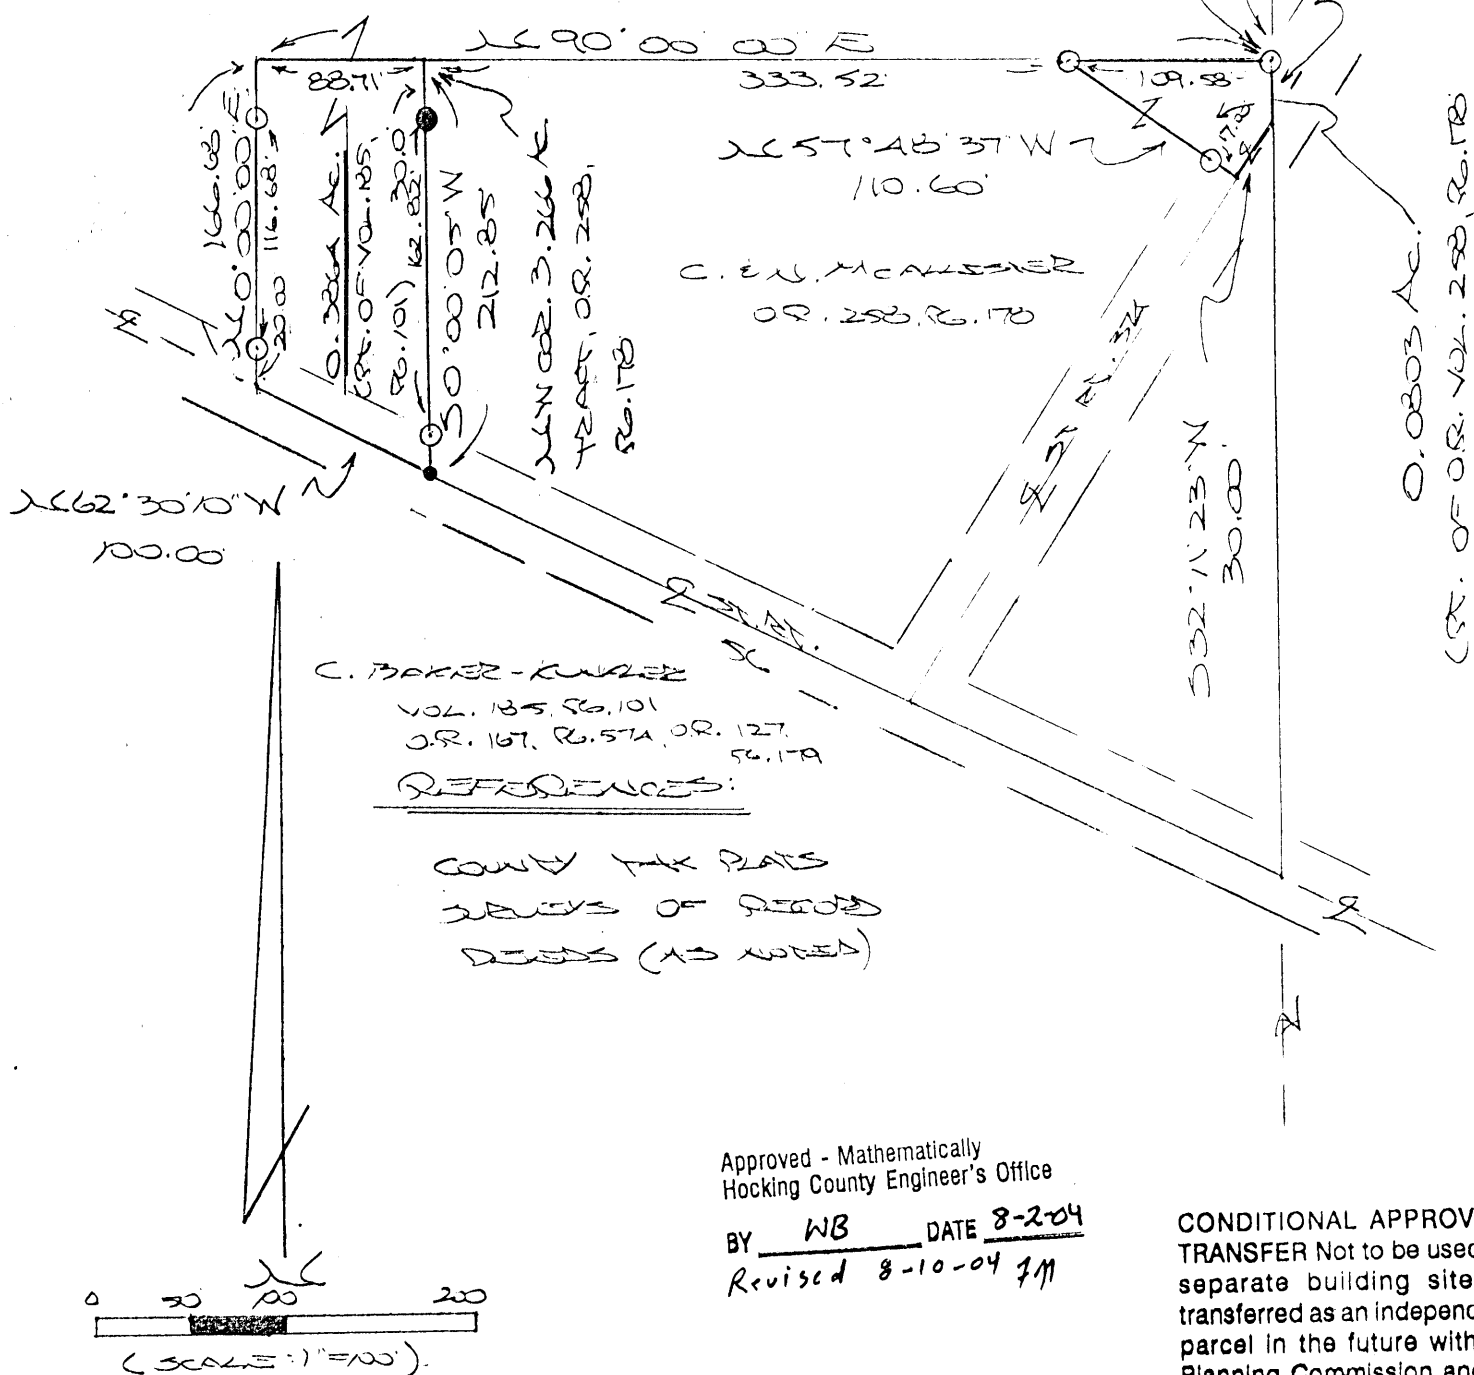 N 90° 00' 00" E
88.71'
333.52'
109.58'
166.68'
N 0° 00' 00" E
116.68'
20.00
0.3864 Ac.
(PT. OF VOL. 185,
PG. 101)
162.85'
30.0
S 0° 00' 05" W
212.85
NW COR. 3.266 Ac.
TRACT, O.R. 258,
PG. 178
N 57° 48' 37" W
110.60'
C. & N. McALLISTER
O.R. 258, PG. 178
℄ ST. RT. 374
S 32° 11' 23" W
30.00'
0.0803 Ac.
(PT. OF O.R. VOL. 258, PG. 178
N 62° 30' 10" W
100.00'
℄ ST. RT.
56
C. BAKER-KUNKLER
VOL. 185, PG. 101
O.R. 167, PG. 574, O.R. 127,
PG. 179
REFERENCES:
COUNTY TAX PLATS
SURVEYS OF RECORD
DEEDS (AS NOTED)
Approved - Mathematically
Hocking County Engineer's Office
BY WB DATE 8-2-04
Revised 8-10-04
CONDITIONAL APPROV
TRANSFER Not to be used
separate building site
transferred as an independ
parcel in the future with
Planning Commission and
N
0 50 100 200
(SCALE: 1"=100')